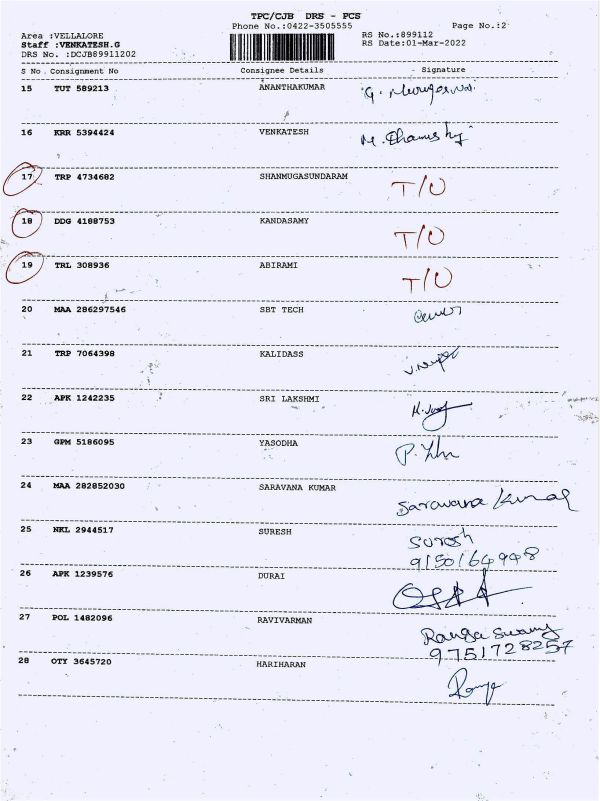 TPC/CJB DRS - PCS
Phone No.:0422-3505555 Page No.:2
Area :VELLALORE RS No.:899112
Staff :VENKATESH.G RS Date:01-Mar-2022
DRS No. :DCJB89911202
S No. Consignment No Consignee Details Signature
15 TUT 589213 ANANTHAKUMAR
16 KRR 5394424 VENKATESH
17 TRP 4734682 SHANMUGASUNDARAM T/O
18 DDG 4188753 KANDASAMY T/O
19 TRL 308936 ABIRAMI T/O
20 MAA 286297546 SBT TECH
21 TRP 7064398 KALIDASS
22 APK 1242235 SRI LAKSHMI
23 GPM 5186095 YASODHA
24 MAA 282852030 SARAVANA KUMAR Saravana Kumar
25 NKL 2944517 SURESH Suresh
9150164948
26 APK 1239576 DURAI
27 POL 1482096 RAVIVARMAN Ranga Swamy
9751728257
28 OTY 3645720 HARIHARAN